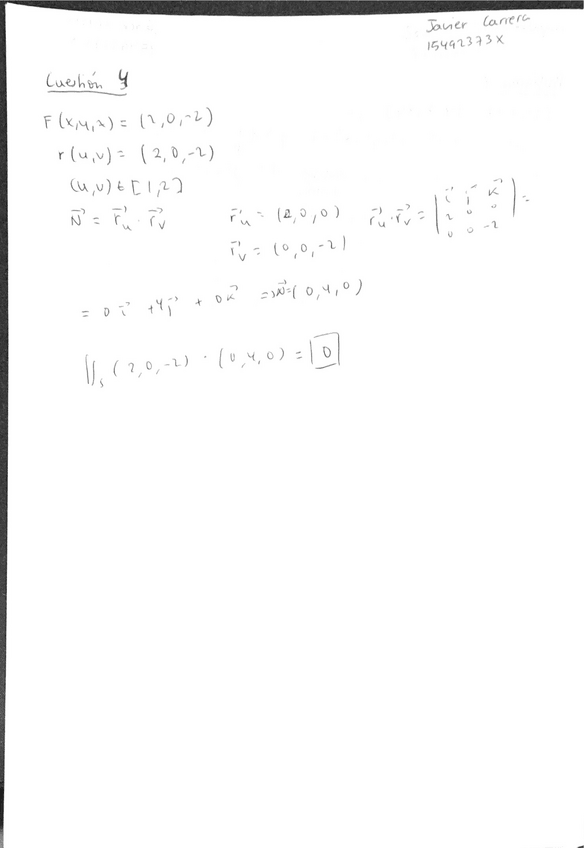 Javier Carrera
15492373X
Cuestión 4
F(x,y,z) = (2,0,-2)
r(u,v) = (2,0,-2)
(u,v) ∈ [1,2]
N⃗ = r⃗u · r⃗v   r⃗u = (2,0,0)   r⃗u · r⃗v = | i⃗ j⃗ k⃗ | =
r⃗v = (0,0,-2)   | 2 0 0 |
| 0 0 -2 |
= 0i⃗ + 4j⃗ + 0k⃗ ⇒ N⃗ = (0,4,0)
∬s (2,0,-2) · (0,4,0) = 0